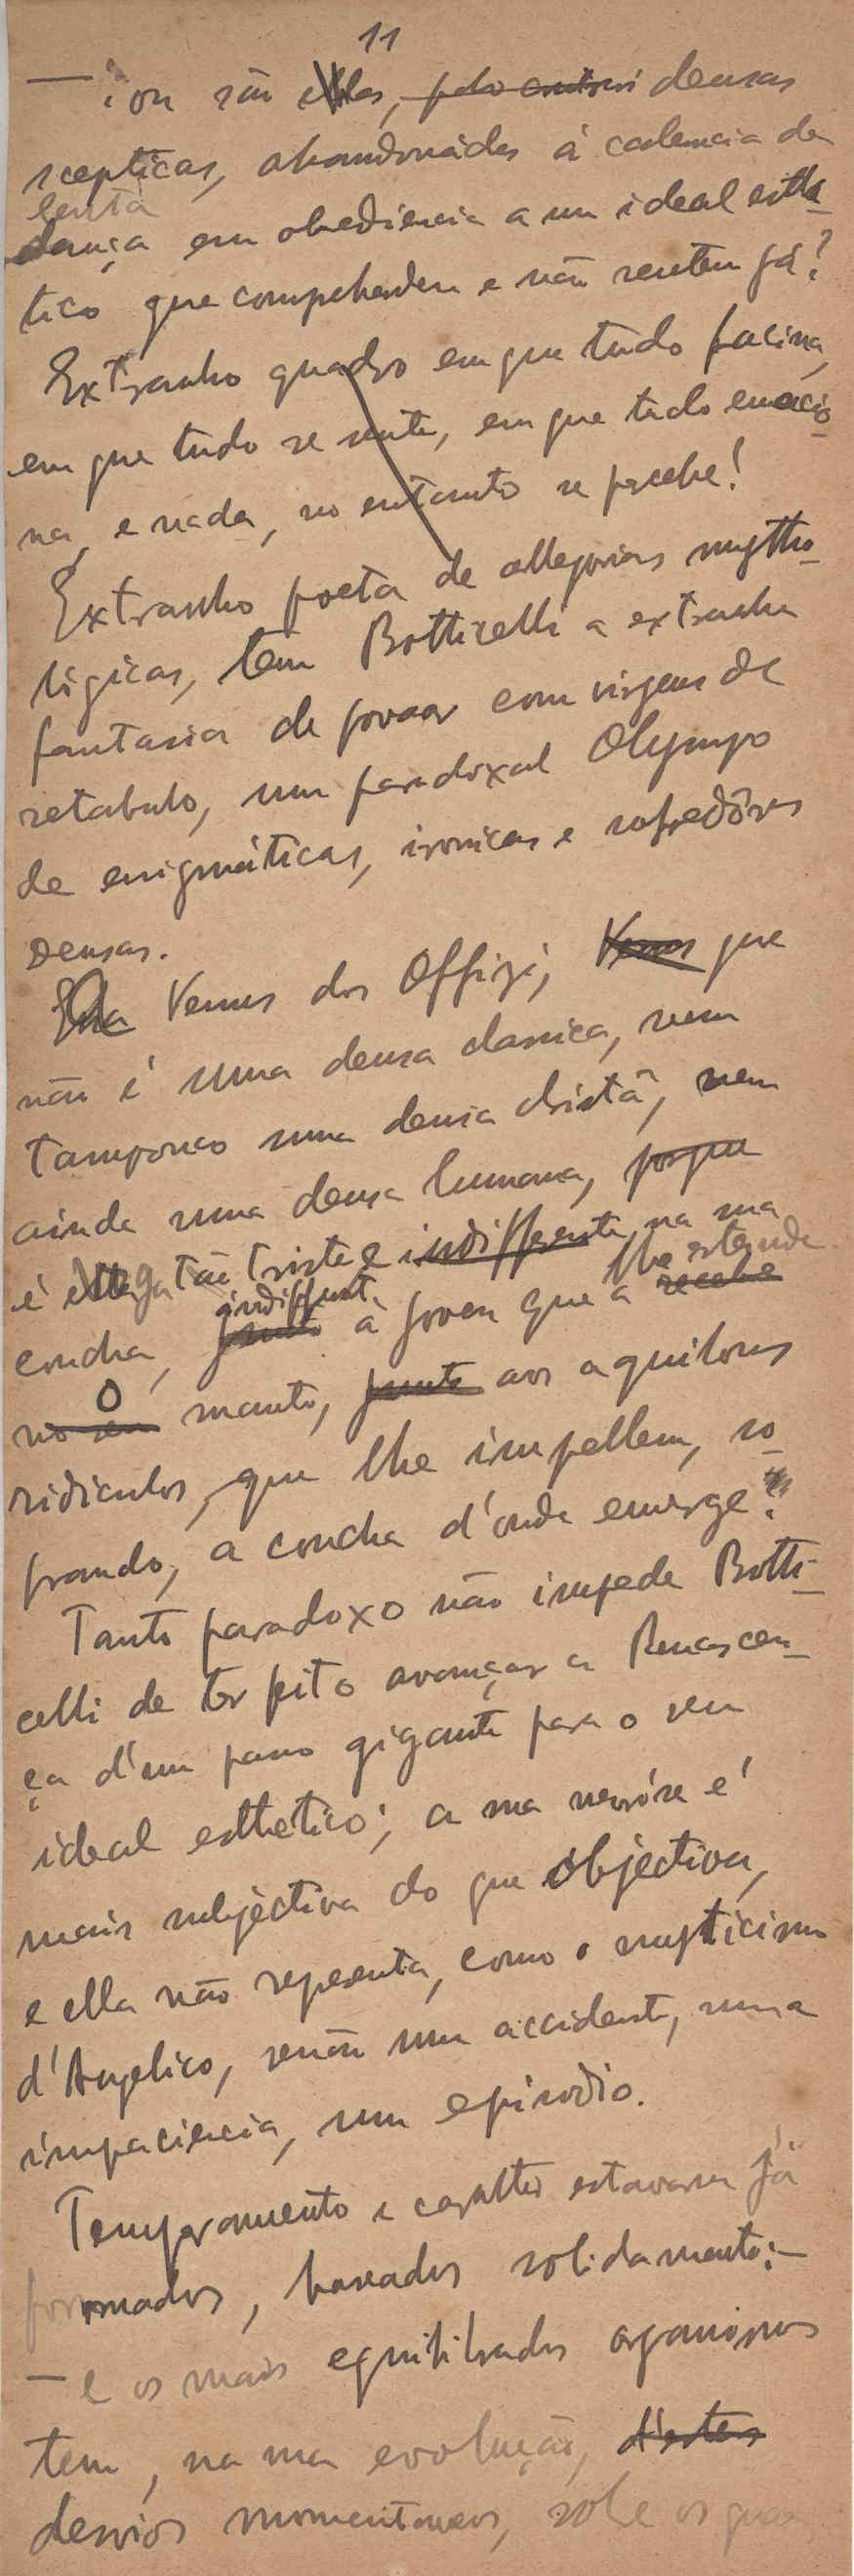 11
— : ou são ellas, deusas
scepticas, abandonádas á cadencia da
lenta
dança em obediencia a um ideal esthe-
tico que comprehendem e não sentem já?
Extranho quadro em que tudo facina,
em que tudo se sente, em que tudo emocio-
na, e nada, no entanto se percebe!
Extranho poeta de allegorias mytho-
lógicas, tem Botticelli a extranha
fantasia de povoar com virgens de
retabulo, um paradoxal Olympo
de enigmáticas, ironicas e sofredôras
deusas.
Venus dos Offizi, Venus que
não é uma deusa classica, nem
tampouco uma deusa christã, nem
ainda uma deusa humana, porque
é ella tão triste e indifferente na sua
indifferente lhe estende
concha, junto à joven que a recebe
O
no seu manto, junto aos aquilones
ridiculos, que lhe impellem, so-
prando, a concha d'onde emerge?
Tanto paradoxo não impede Botti-
celli de ter feito avançar a Renascen-
ça d'um passo gigante para o seu
ideal esthetico; a sua nevróse é
mais subjéctiva do que objectiva,
e ella não representa, como o mysticismo
d'Angelico, senão um accidente, uma
impaciencia, um episodio.
Temperamento e caracter estavam já
formados, baseados solidamente:—
— e os mais equilibrados organismos
tem, na sua evolução, d'estes
desvios momentaneos, sobre os quaes